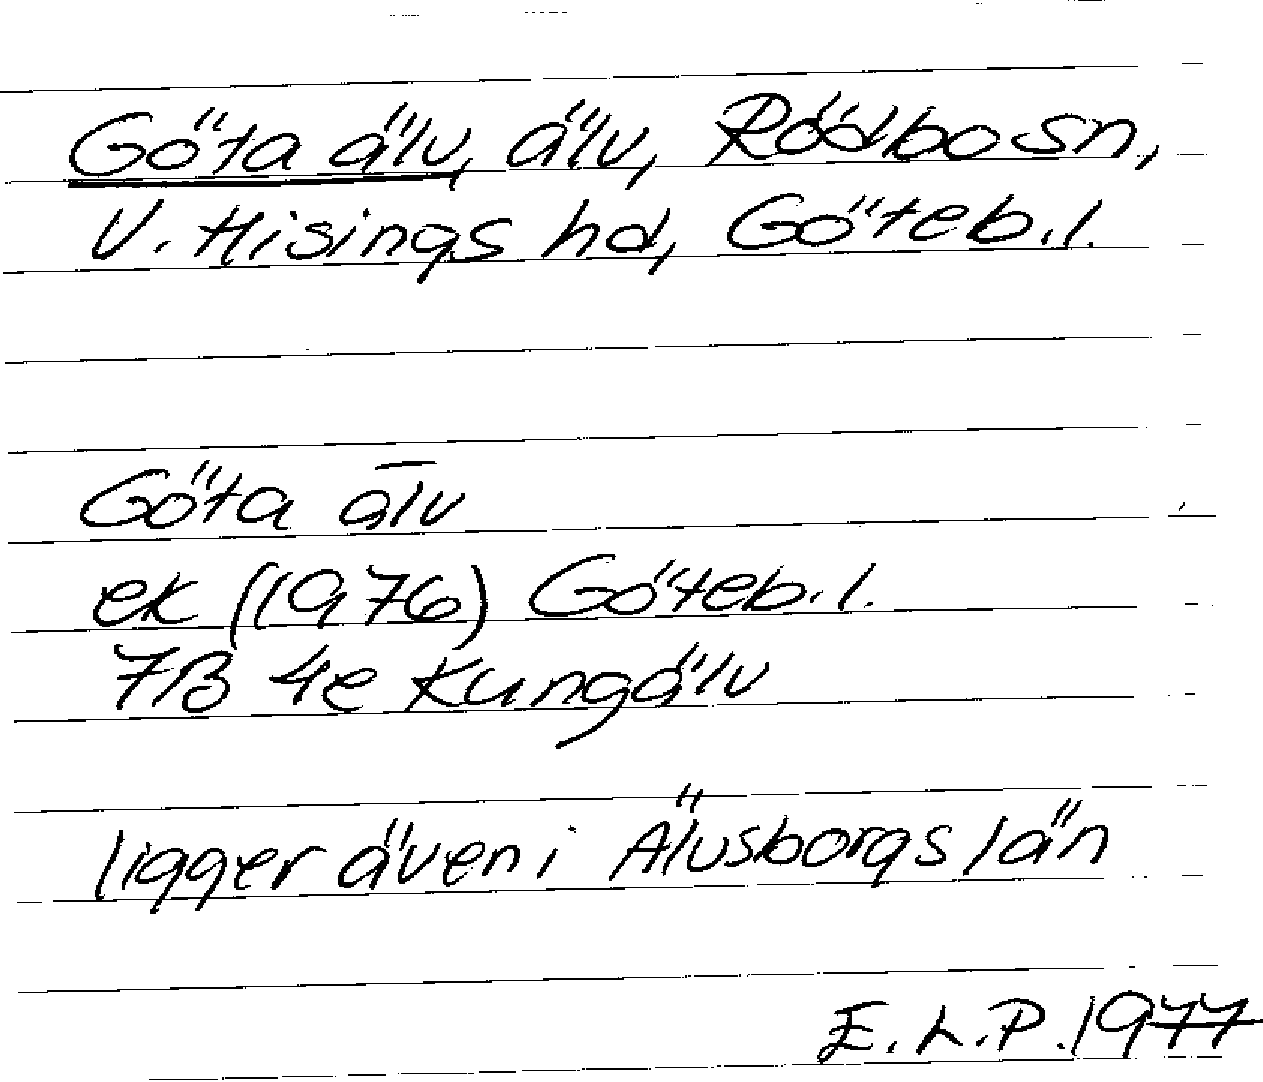 Göta älv, älv, Rödbo sn,
V. Hisings hd, Göteb. l.
Göta älv
ek (1976) Göteb. l.
7B 4e Kungälv
ligger även i Älvsborgs län
E.L.P. 1977